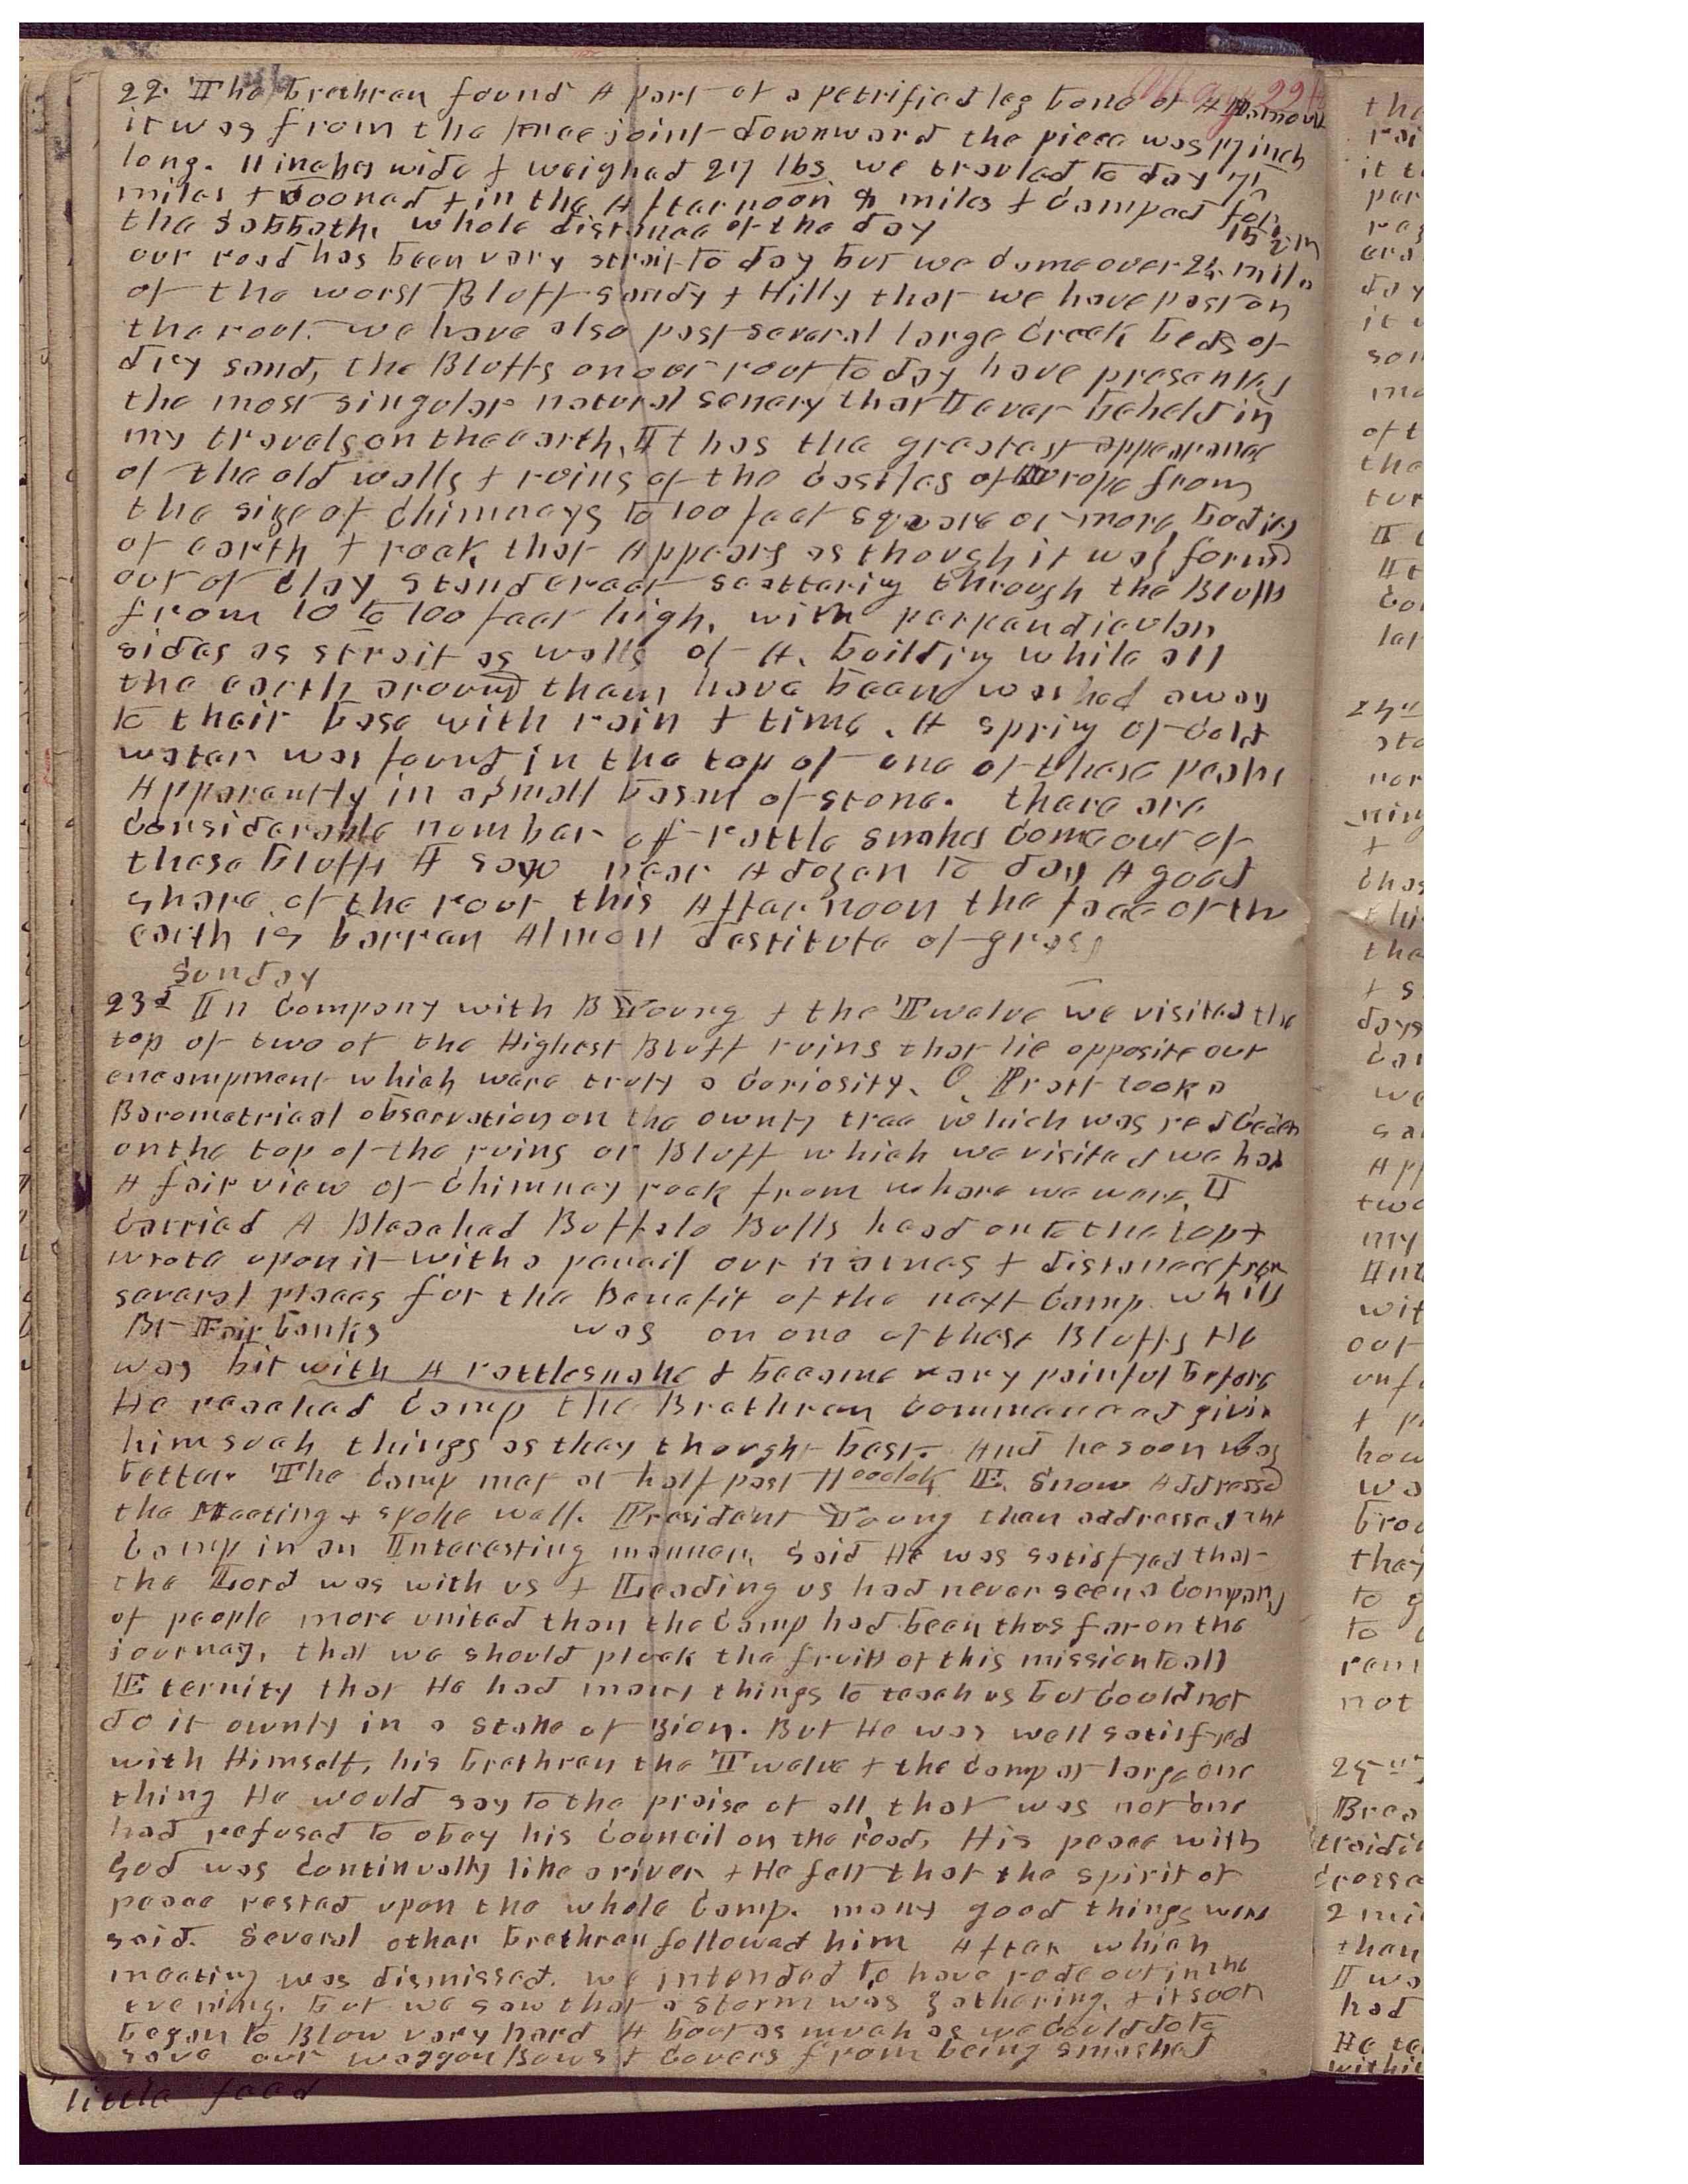 May 22nd
22. The brethren found A part of a petrified leg bone of A Mamouth
it was from the knee joint downward the piece was 17 inch
long. 11 inches wide & weighed 27 lbs we traveled to day 7½
miles & nooned & in the Afternoon 8 miles & Camped for
the Sabbath, whole distance of the day 15½ m
our road has been very strait to day but we came over 2½ mile
of the worst Bluff sandy & Hilly that we have past on
the rout. we have also past several large Creek beds of
dry sand, the Bluffs on our rout to day have presented
the most singular natural senery that I ever beheld in
my travels on the earth, It has the greatest appearance
of the old walls & ruins of the Castles of Europe from
the size of Chimneys to 100 feet square or more, bodies
of earth & rock that Appears as though it was formd
out of Clay stand erect scattering through the Bluffs
from 10 to 100 feet high, with perpendicular
sides as strait as walls of A. building while all
the earth around them have been washed away
to their base with rain & time. A spring of Cold
water was found in the top of one of these peaks
Apparently in a small basan of stone. there are
Considerable number of rattle snakes Come out of
these bluffs I saw near A dozen to day A good
share of the rout this Afternoon the face of the
earth is barren Almost destitute of grass
Sunday
23d In Company with B Young & the Twelve we visited the
top of two of the Highest Bluff ruins that lie opposite our
encampment which were truly a Curiosity. O Pratt took a
Barometrical observation on the ownly tree which was red Ceder
on the top of the ruins or Bluff which we visited we had
A fair view of Chimney rock from where we were, I
Carried A Bleached Buffalo Bulls head onto the top &
wrote upon it with a pencil our names & distances from
several places for the Benefit of the next Camp. whils
Br Fairbanks was on one of these Bluffs He
was bit with A rattlesnake & became very painful before
He reached Camp the Brethren Commenced givin
him such things as they thought best. And he soon was
better. The Camp met at half past 11 oclok E. Snow Addressed
the Meeting & spoke well. President Young then addressed the
Camp in an Interesting manner, Said He was satisfyed that
the Lord was with us & Leading us had never seen a Company
of people more united than the Camp had been thus far on the
journey, that we should pluck the fruits of this mission to all
Eternity that He had many things to teach us but Could not
do it ownly in a Stake of Zion. But He was well satisfyed
with Himself, his brethren the Twelve & the Camp at large one
thing He would say to the praise of all, that was not one
had refused to obey his Council on the road, His peace with
God was Continually like a river & He felt that the spirit of
peace rested upon the whole Camp. many good things were
said. Several other brethren followed him After which
meeting was dismissed. we intended to have rode out in the
evening. but we saw that a storm was gathering, & it soon
began to Blow very hard A bout as much as we Could do to
save our waggon Bows & Covers from being smashed
little food